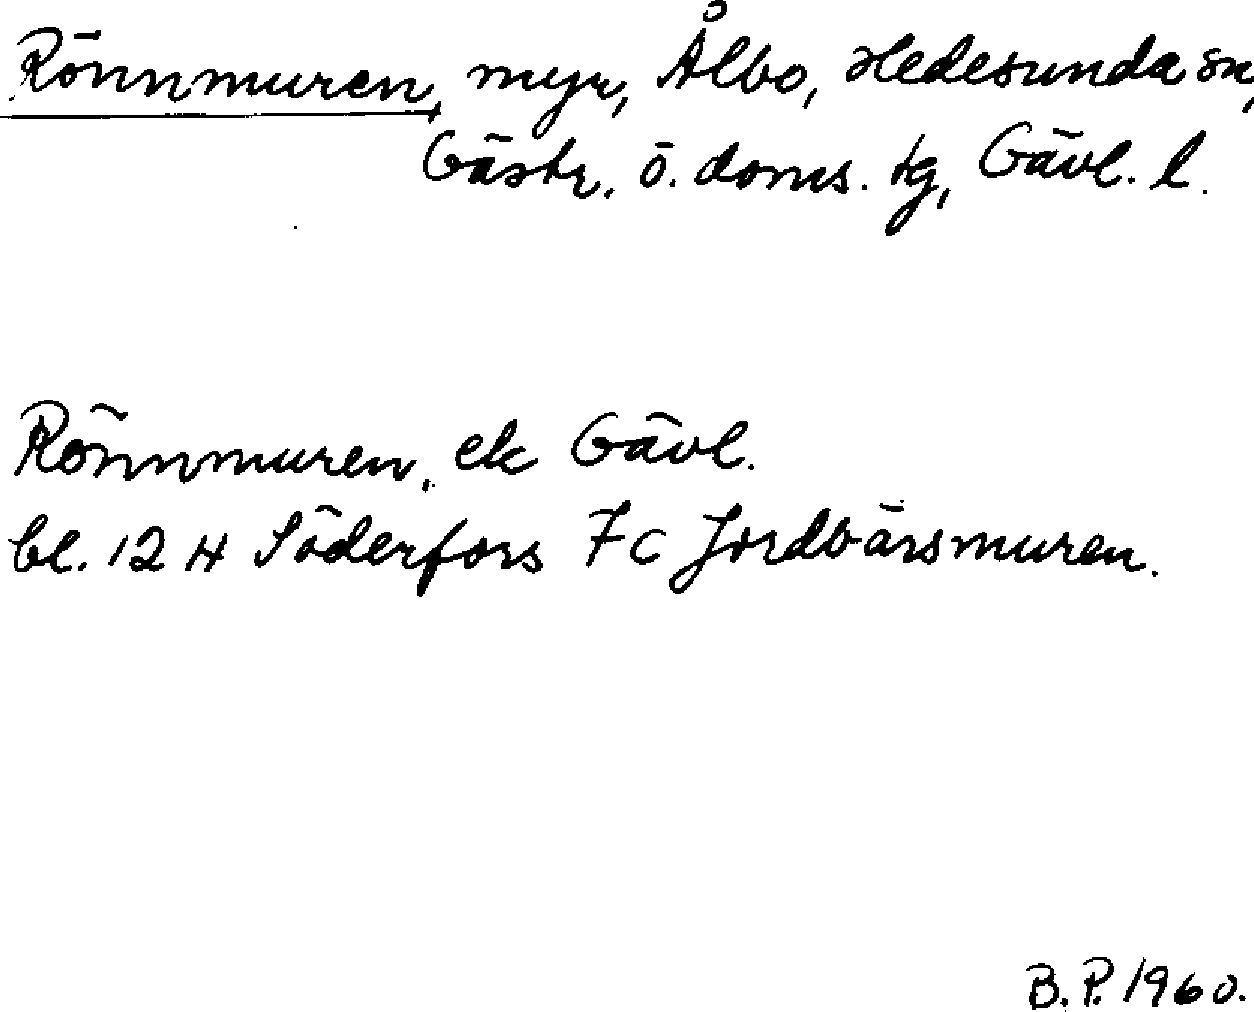 Rönnmuren, myr, Ålbo, Hedesunda sn,
Gästr. ö. doms. tg, Gävl. l.
Rönnmuren, ek Gävl.
bl. 12 H Söderfors 7 c Jordbärsmuren.
B. P. 1960.